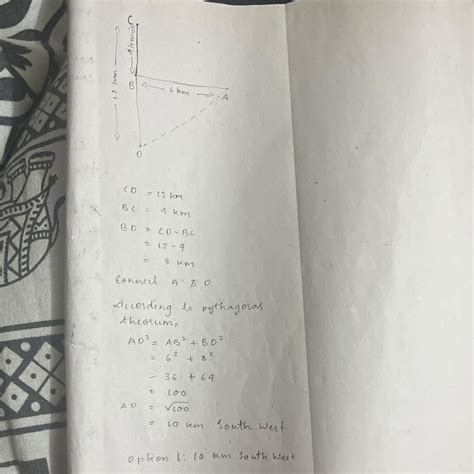 C
4 km
12 km
B
6 km
A
D
CD = 12 km
BC = 4 km
BD = CD - BC
= 12 - 4
= 8 km
Connect A & D
According to pythagoras
theorum,
AD² = AB² + BD²
= 6² + 8²
= 36 + 64
= 100
AD = √100
= 10 km South West
Option 1: 10 km South West